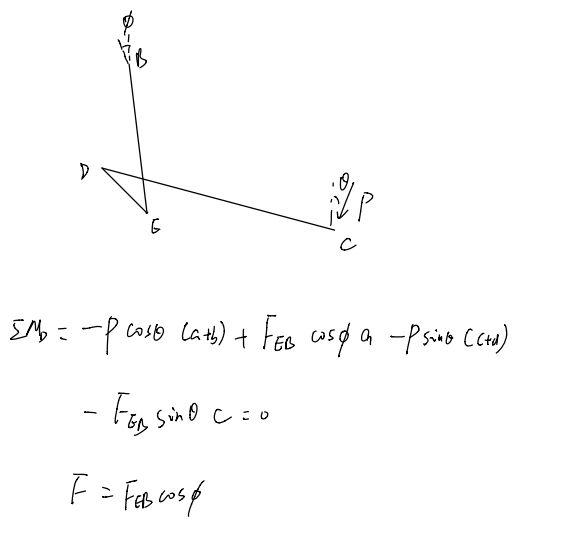 ϕ
B
D
E
θ
P
C
ΣM_D = -P cosθ (a+b) + F_EB cosϕ a - P sinθ (c+d)
- F_EB sinθ c = 0
F = F_EB cosϕ